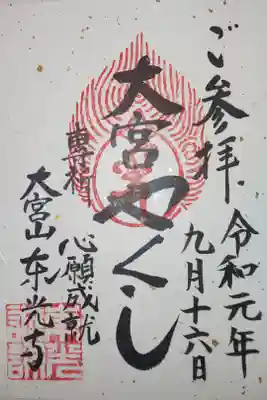 ご参拝
令和元年
九月十六日
大宮やくし
尊称
心願成就
大宮山东光寺